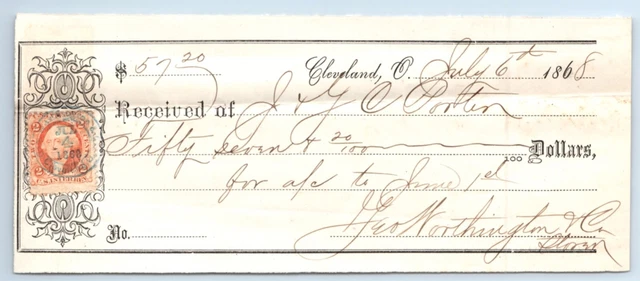 $ 57 20 Cleveland, O. July 6th 1868
Received of J & G C Porter
Fifty seven & 20/100 100 Dollars,
for a/c to June 1st
No. Geo Worthington & Co